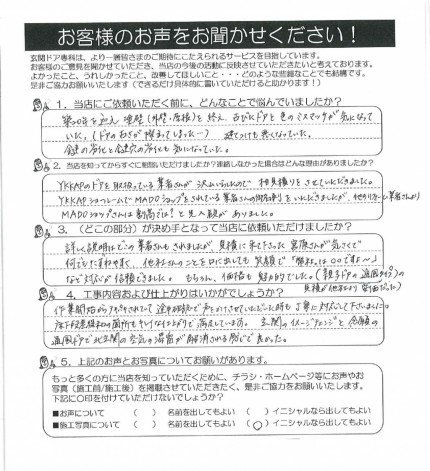 お客様のお声をお聞かせください！
玄関ドア専科は、より一層皆さまのご期待にこたえられるサービスを目指しています。
お客様のご意見を聞かせていただき、当店の今後の活動に反映させていただきたいと考えております。
よかったこと、うれしかったこと、改善してほしいこと・・・どのような些細なことでも結構です。
是非ご協力お願いします（できるだけ具体的に書いていただけると助かります！）
1．当店にご依頼いただく前に、どんなことで悩んでいましたか？
築20年を迎え 塗装（外壁・屋根）を終え、古びたドアと色のミスマッチが気になって
いた。（ドアの古さが
鍵の劣化と鍵穴の劣化も気になっていた。
2．当店を知ってからすぐに電話いただけましたか？連絡しなかった場合はどんな理由がありましたか？
YKKAPのドアを取扱っている業者さんが沢山いたので 相見積りをさせていただきました。
YKKAPショールームとMADOショップをされている業者さんの相見積りをいただきましたが、他
MADOショップさんは割高では！と先入観がありました。
3．（どこの部分）が決め手となって当店に依頼いただけましたか？
詳しく説明はどこの業者さんもされましたが、見積に来て下さった
何でもたずねやすく、他社さんのことを口に出しても笑顔で
など対応が信頼できました。 もちろん、価格も魅力的でした。（親子ドアの通風タイプの
見積が他社より
4．工事内容および仕上がりはいかがでしょうか？
作業開始から
満足しています。 玄関のイメージチェンジと念願の
通風ドアで北玄関の空気の滞留が解消される感じで良かった。
5．上記のお声とお写真についてお願いがあります。
もっと多くの方に当店を知っていただくために、チラシ・ホームページ等にお声やお
写真（施工前/施工後）を掲載させていただきたく、是非ご協力をお願いいたします。
下記に○印を付けていただけないでしょうか？
■お声について （ ） 名前を出してもよい （ ）イニシャルなら出してもよい
■施工写真について （ ） 名前を出してもよい （○）イニシャルなら出してもよい